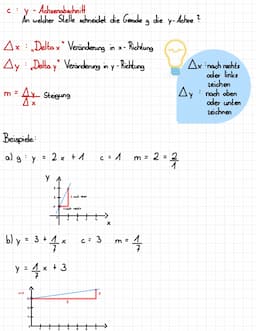 c : y - Achsenabschnitt
An welcher Stelle schneidet die Gerade g die y-Achse ?
Δx : "Delta x" Veränderung in x - Richtung
Δy : "Delta y" Veränderung in y - Richtung
m = Δy / Δx Steigung
Δx : nach rechts
oder links
zeichen
Δy : nach oben
oder unten
zeichnen
Beispiele :
a) g : y = 2x + 1 c = 1 m = 2 = 2/1
y
x
b) y = 3 + 1/7 x c = 3 m = 1/7
y = 1/7 x + 3